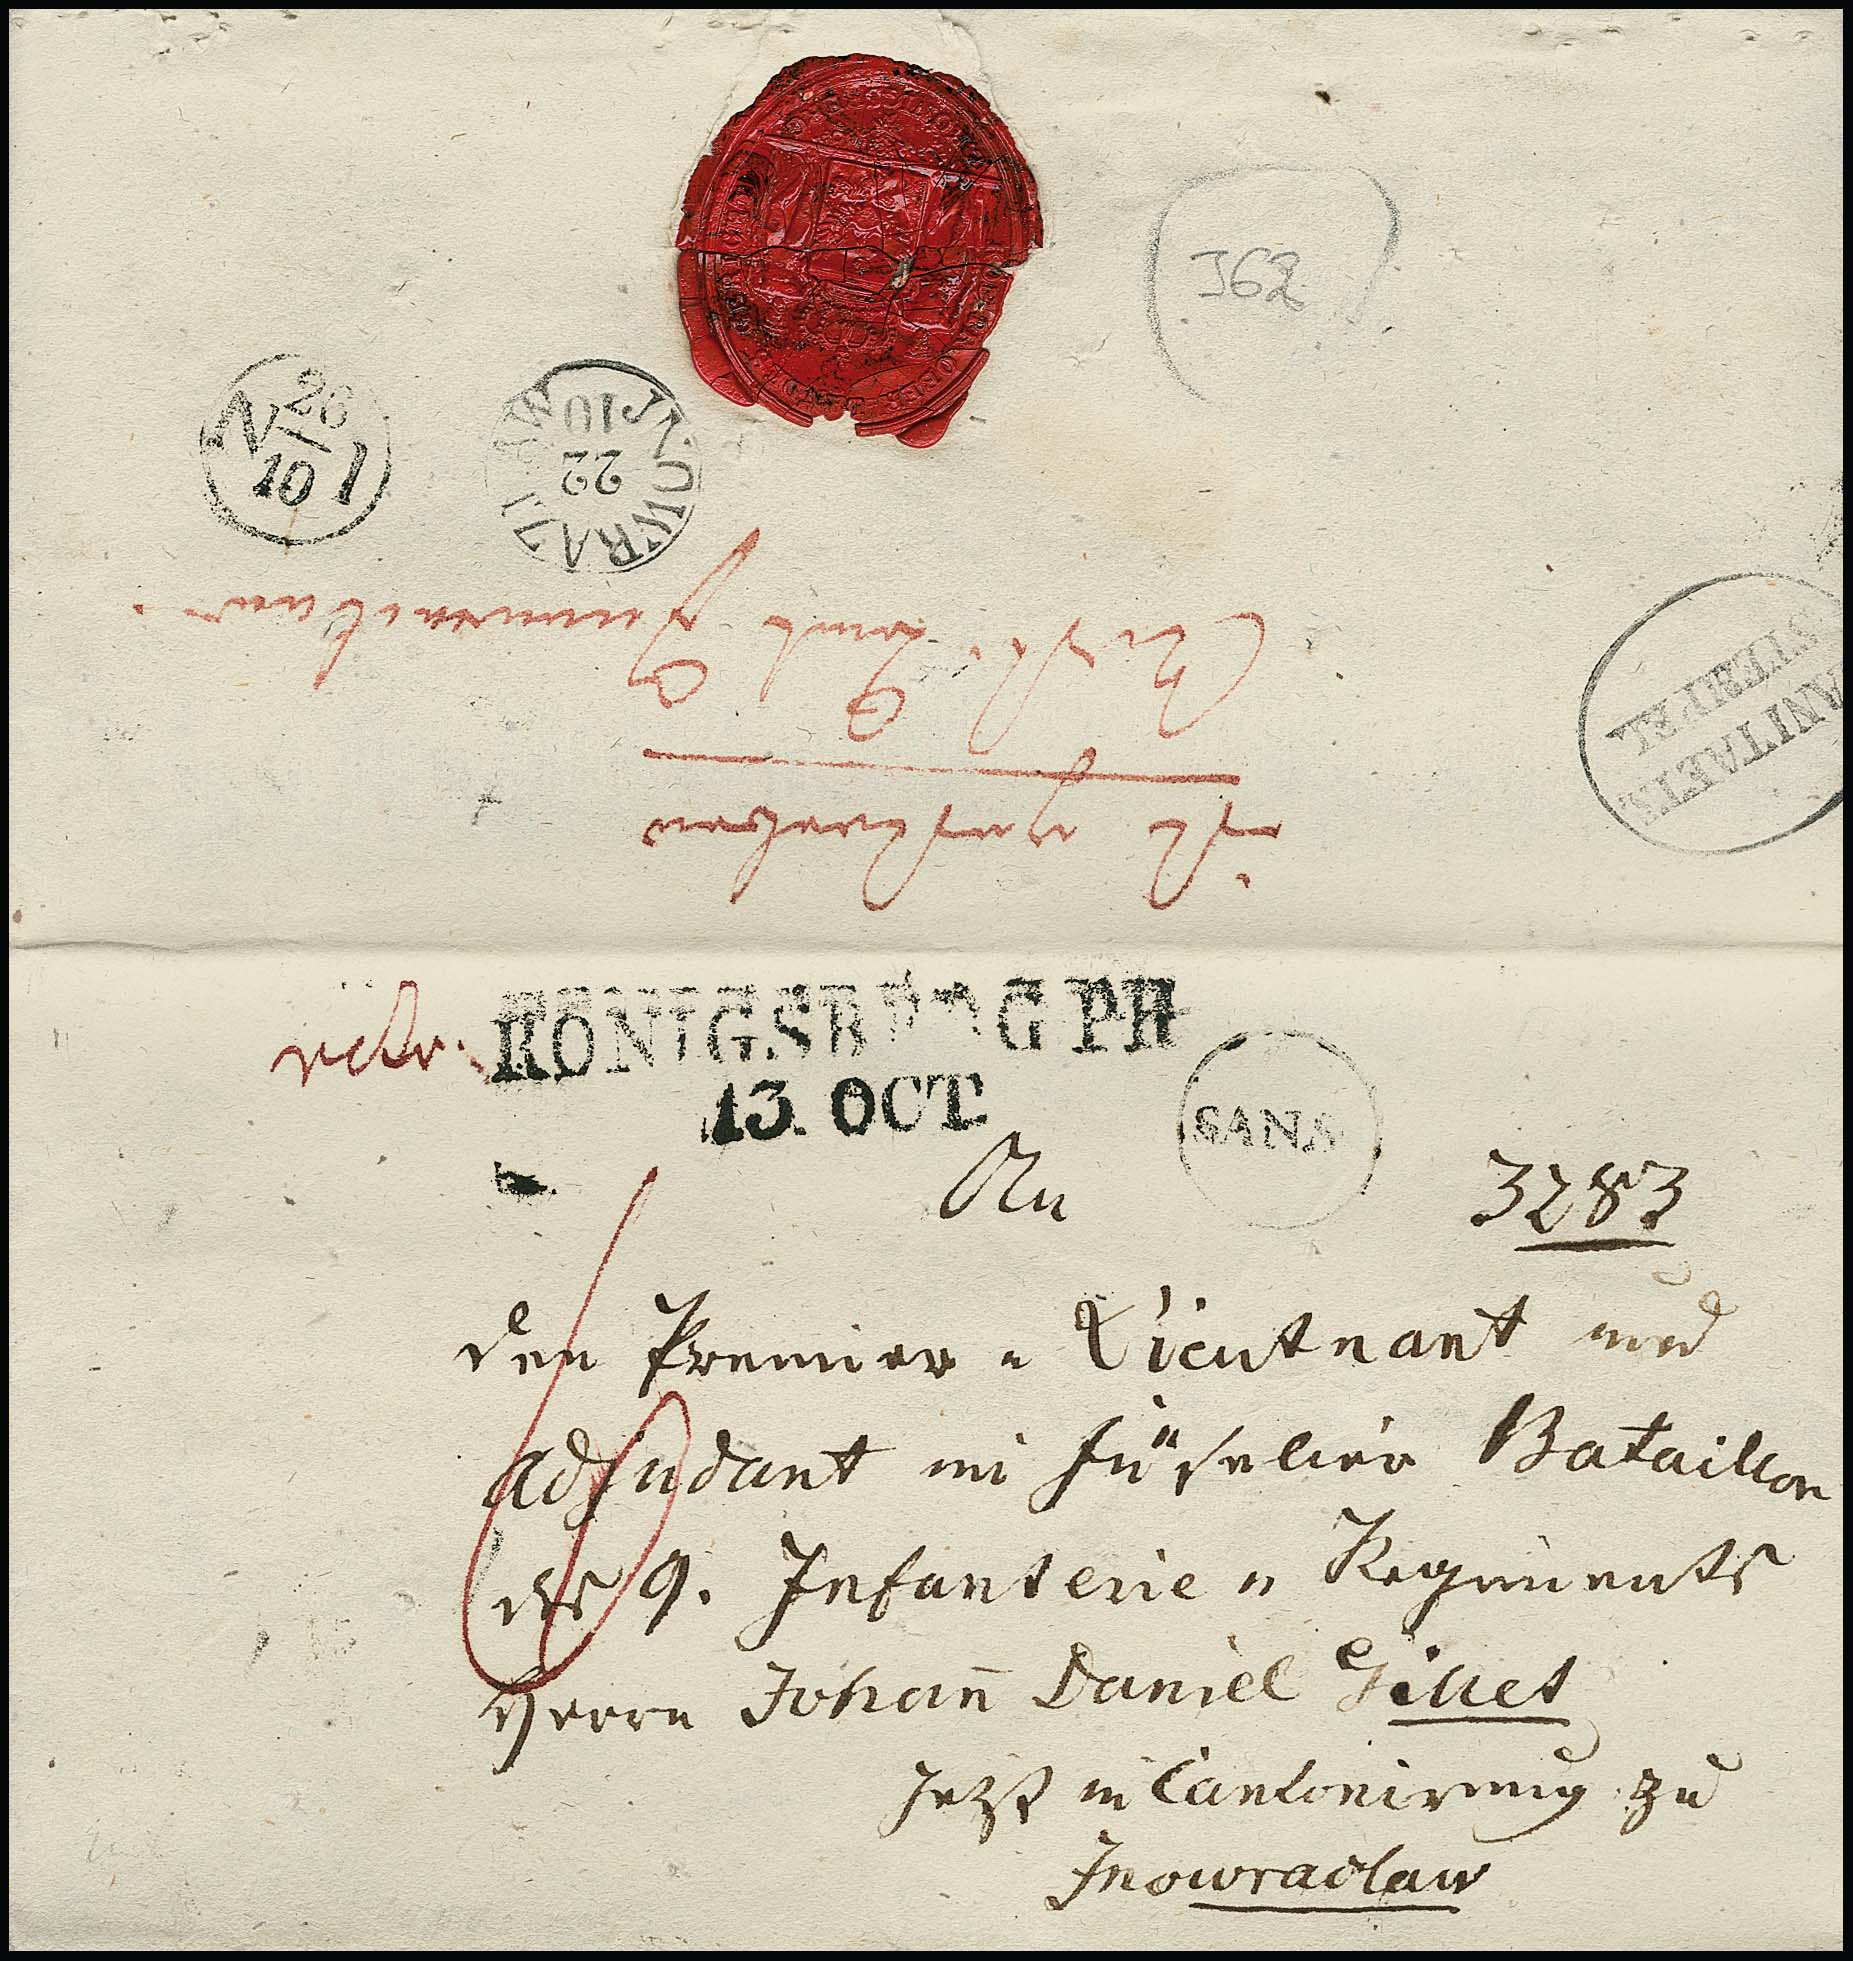 362
26
N 10 1
INOWRACLAW
22
10
ist verstorben
SANITAETS
STEMPEL
KÖNIGSBERG PR
13. OCT.
SANS
An
3283
den Premier-Lieutnant und
Adjudant im Füselier Bataillon
des 9. Infanterie-Regiments
Herrn Johan̄ Daniel Gillet
Jetzt in Cantonirung zu
Inowraclaw